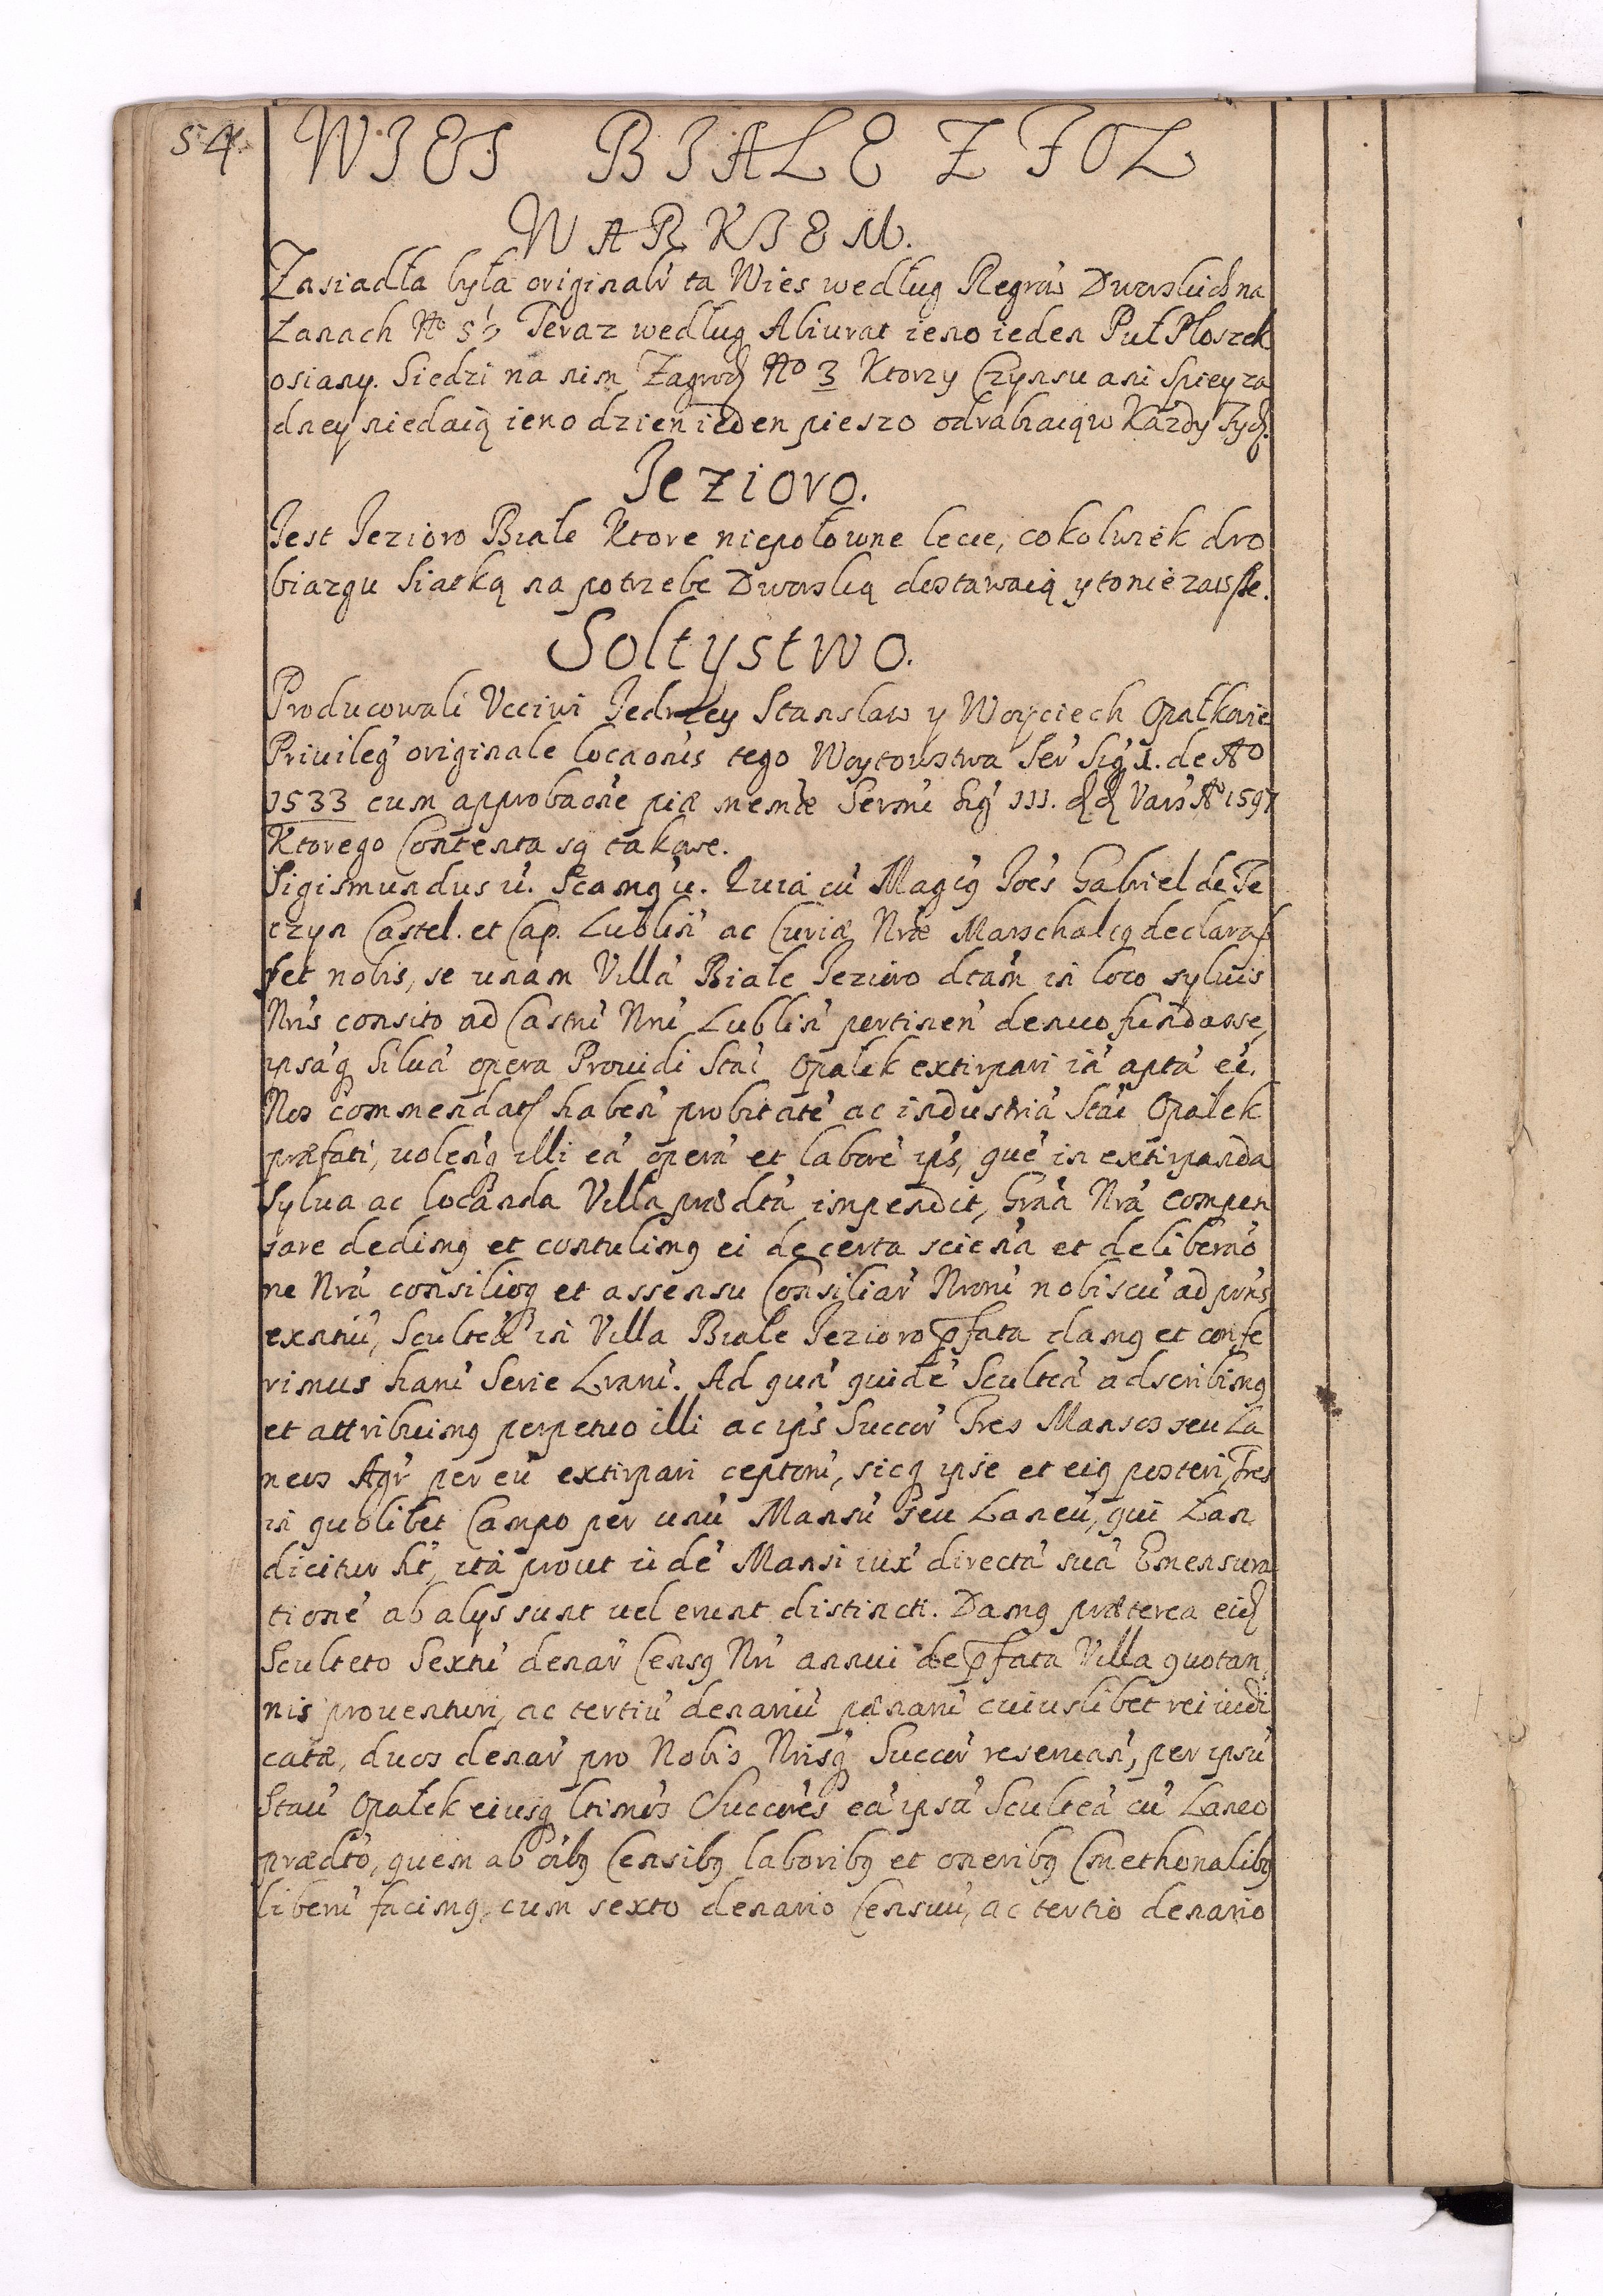 54.
WIES BIAŁE Z FOL
WARKIEM.
Zasiadła była originalr ta Wies według Regrów Dworskich na
Łanach No 5½ Teraz według Abiurat ieno ieden Puł Płoszek
osiany. Siedzi na nim Zagrod No 3 Ktorzy Czynsu ani Spiey za
dney niedaią ieno dzien ieden pieszo odrabiaią w Kazdy Tyd.
Iezioro.
Iest Iezioro Białe Ktore niepołowne lecie, cokolwiek dro
biazgu Siatką na potrzebe Dworską dostawaią y to nie zawsze.
Soltystwo.
Producowali Vcciwi Iedrzey Stanslaw y Woyciech Opałkowie
Priuileg originale locaonis tego Woytowstwa Ser Sig 1. de Ao
1533 cum approbaone piæ memæ Sermi Sig III. dd Vars Ao 1597
Ktorego Contenta są takowe.
Sigismundus ü. Scamq ü. Quia cu Magcq Ioes Gabriel de Te
czyn Castel. et Cap. Lublin ac Curiæ Nræ Marschalcq declaras
set nobis, se unam Villa Białe Iezioro dtam in loco syluis
Nris consito ad Castru Nru Lublin pertinen denuo fundasse,
ipsaq Silua opera Prouidi Stai Opałek extirpari ia apta ee.
Nos commendat haben probitate ac industria Stai Opałek
præfati, uolenq illi ea opera et labore ips, que in extirpanda
Sylua ac locanda Villa prædta impendit, Graa Nra compen
sare dedimq et contulimq ei de certa sciena et deliberao
ne Nra consilioq et assensu Consiliar Nroru nobiscu ad pons
exntiu, Scultea in Villa Białe Iezioro pfata damq et confe
rimus haru Serie Lraru. Ad qua quide Scultea adscribimq
et attribuimq perpetuo illi ac ips Succor Tres Mansos seu La
neos Agr per eu extirpari ceptoru, sicq ipse et eiq posteri, Tres
in quolibet Campo per unu Mansu seu Laneu, qui Łan
dicitur ht, ita prout iide Mansi iux directa sua Emensura
tione ab alys sunt uel erunt distincti. Damq præterea eid
Sculteto Sextu denar Censq Nri annui de pfata Villa quotan
nis prouenturi, ac tertiu denariu pænaru cuiuslibet rei iudi
catæ, duos denar pro Nobis Nrisq Succor reseruan, per ipsu
Stau Opałek eiusq ltimos Succores ea ipsa Scultea cu Laneo
prædto, quem ab oibq Censibq laboribq et oneribq Cmethonalibq
liberu facimq, cum sexto denario Censuu, ac tertio denario